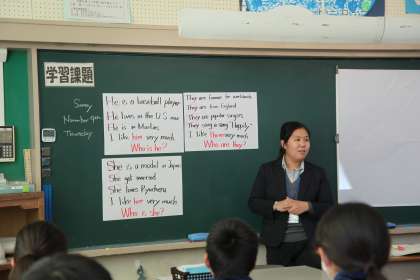 学習課題
Sunny
November 9th
Thursday
He is a baseball player
He lives in the U.S now
He is in Marlins
I like him very much
Who is he?
They are famous for worldwide
They are from England
They are popular singers
They sang a song "Happily"
I like them very much
Who are they?
She is a model in Japan
She got married
She loves Ryucheru
I like her very much
Who is she?